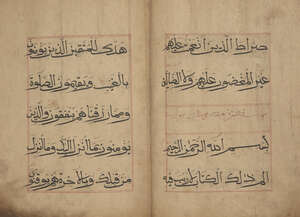 صراط الذين انعمت عليهم
غير المغضوب عليهم ولا الضالين
بسم الله الرحمن الرحيم
الم ذلك الكتاب لا ريب فيه
هدى للمتقين الذين يؤمنون
بالغيب ويقيمون الصلوة
ومما رزقناهم ينفقون والذين
يؤمنون بما انزل اليك وما انزل
من قبلك وبالاخرة هم يوقنون